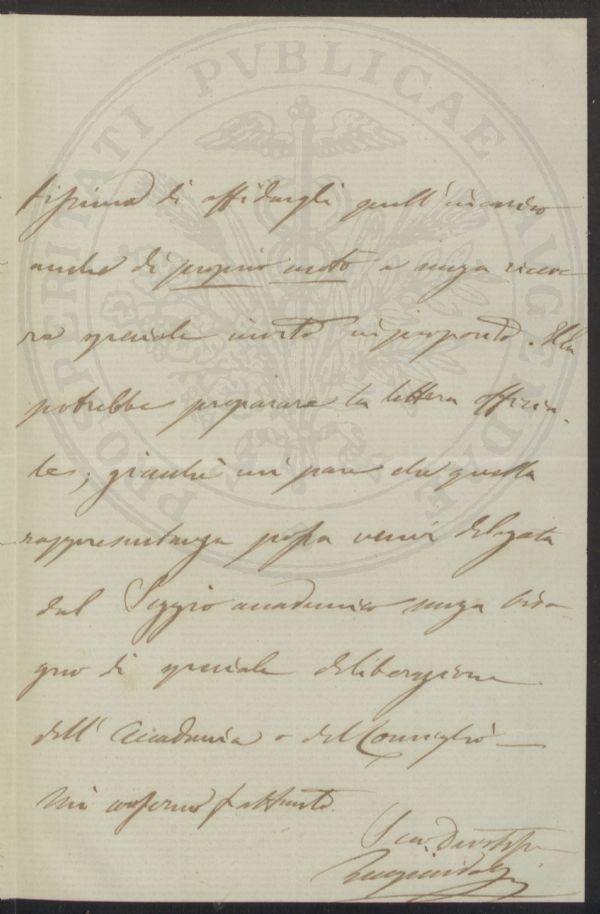 PROSPERITATI PVBLICAE AVGENDAE
di affidargli quell'incarico
anche di proprio moto e senza riceve-
re speciale invito in proposito. Ella
potrebbe preparare la lettera officia-
le; giacché mi pare che quella
rappresentanza possa venir delegata
dal Seggio accademico senza biso-
gno di speciale deliberazione
dell'Accademia o del Consiglio —
Mi confermo frattanto.
Suo Devotiss